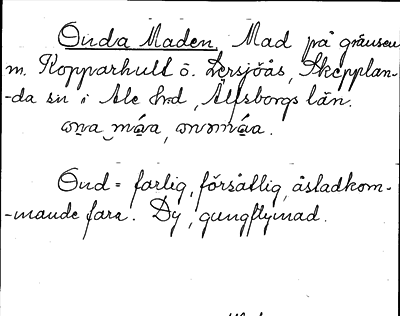 Onda Maden, Mad på gränsen
m. Kopparhult o. Dersjöås, Skepplan-
-da sn i Ale hrd, Älfsborgs län.
Ond = farlig, försåtlig, åsladkom-
-mande fara. Dy, gungflymad.